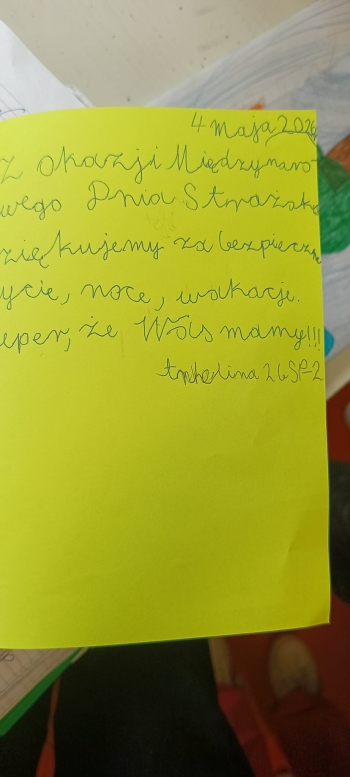 4 maja 2026
Z okazji Międzynaro
wego Dnia Strażak
ziękujemy za bezpieczne
ycie, noce, wakacje.
uper, że Was mamy!!!
2b SP-2